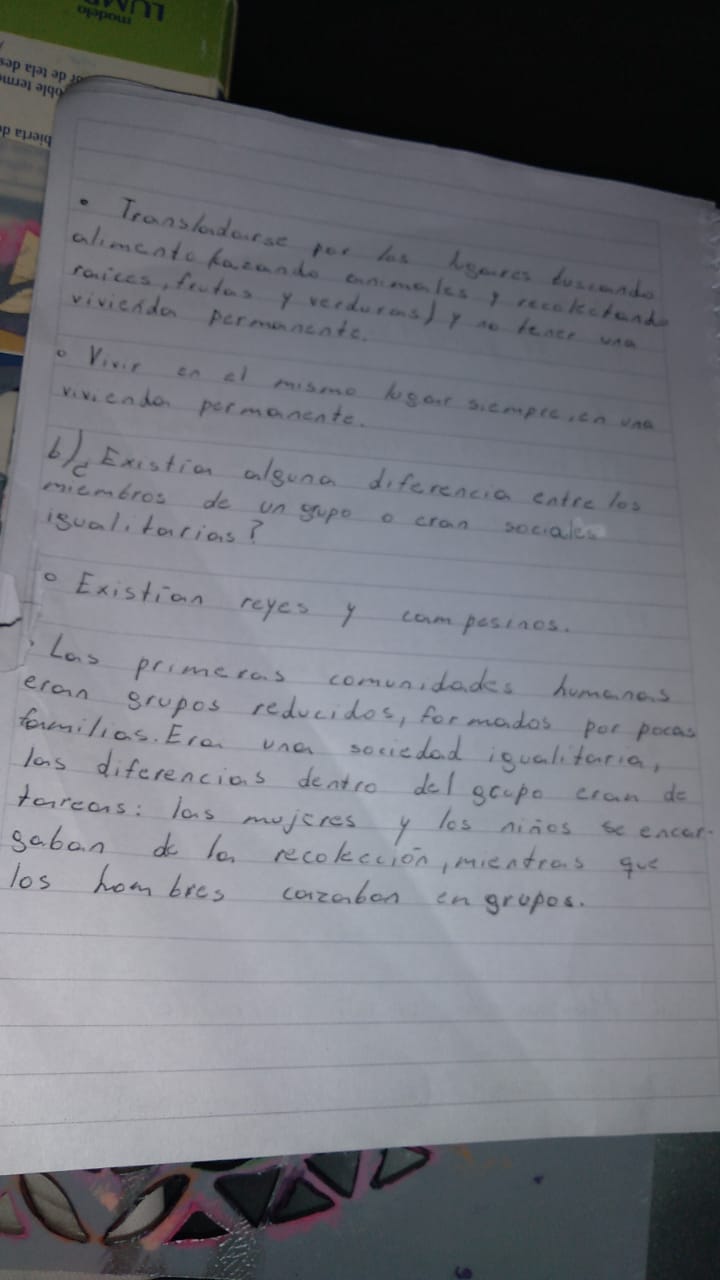 LUM
modelo
de tela des
oble termo
bierta d
• Transladarse por los lugares buscando
alimento kazando animales y recolectando
raices, frutas y verduras) y no tener una
vivienda permanente.
• Vivir en el mismo lugar siempre, en una
vivienda permanente.
b) ¿Existian alguna diferencia entre los
miembros de un grupo o eran sociales
igualitarias?
• Existian reyes y campesinos.
• Las primeras comunidades humanas
eran grupos reducidos, formados por pocas
familias. Era una sociedad igualitaria,
las diferencias dentro del grupo eran de
tareas: las mujeres y los niños se encar-
gaban de la recolección, mientras que
los hombres cazaban en grupos.